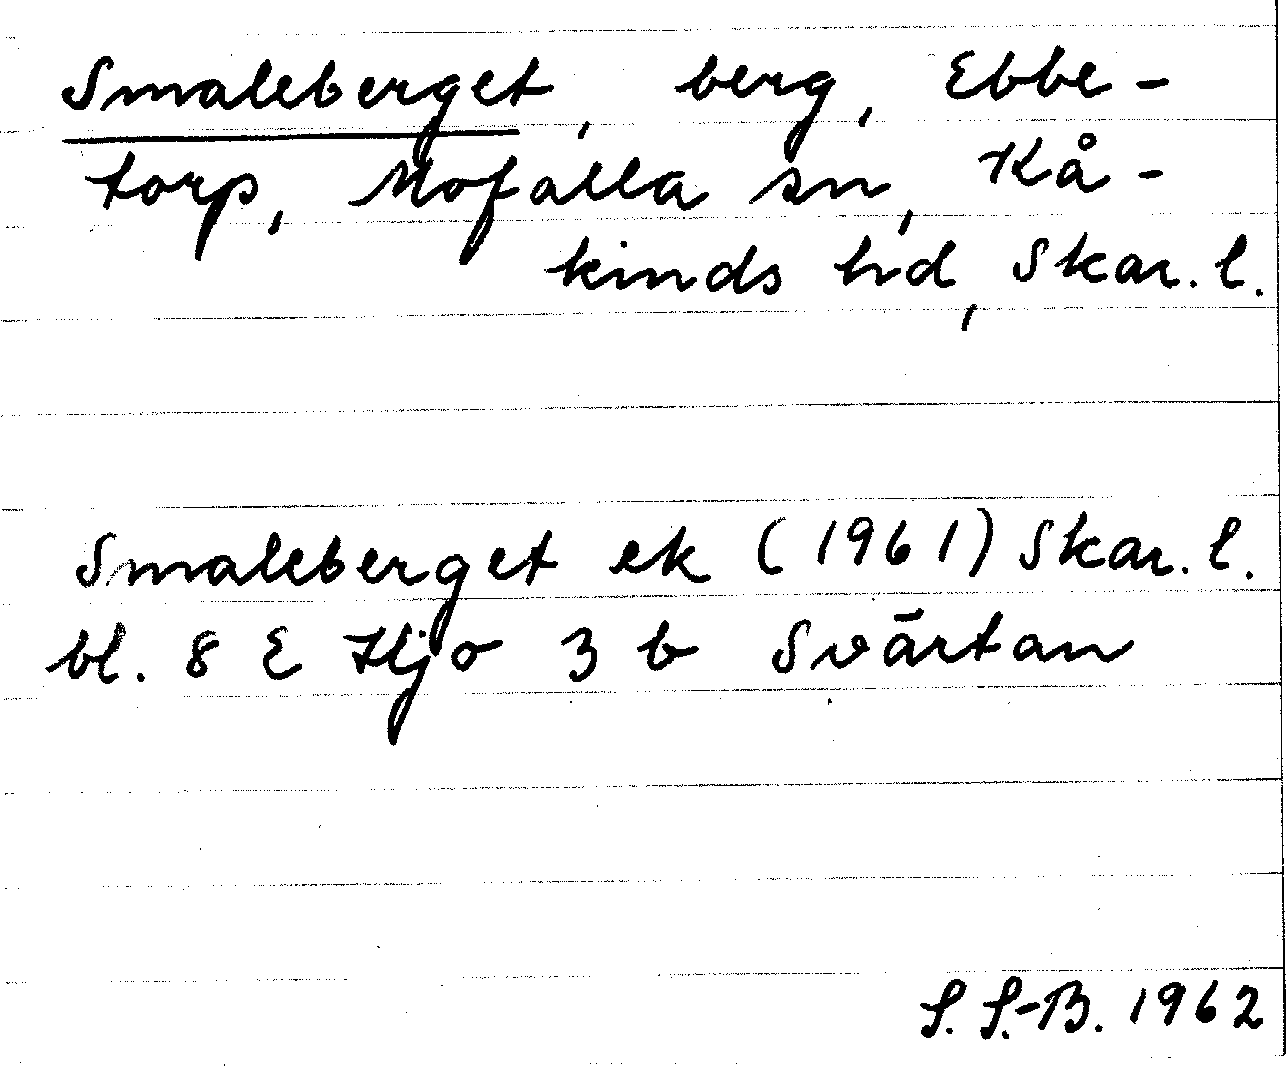 Smaleberget, berg, Ebbe-
torp, Mofalla sn, Kå-
kinds hd, Skar. l.
Smaleberget ek (1961) Skar. l.
bl. 8 E Hjo 3 b Svärtan
S. S.-B. 1962